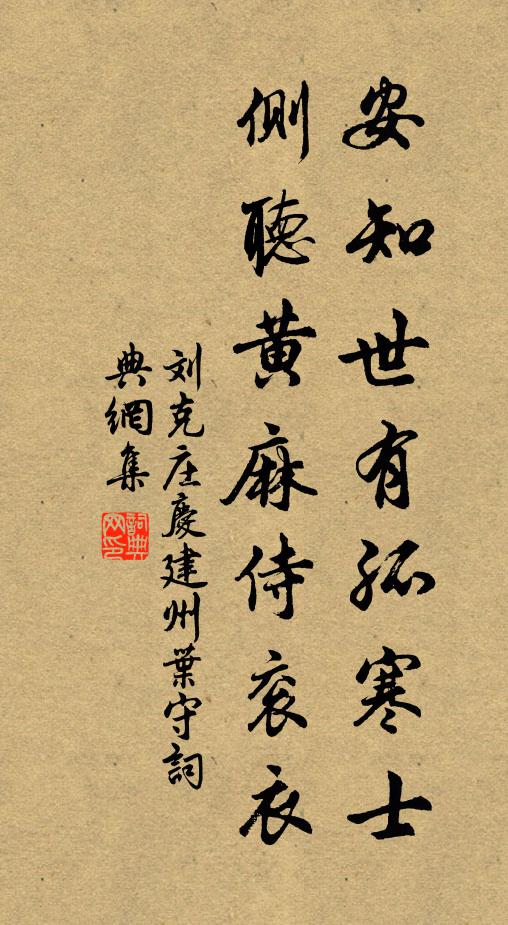 安知世有孤寒士
侧聽黄麻侍衮衣
刘克庄慶建州葉守詞
典網集
詞典
网印